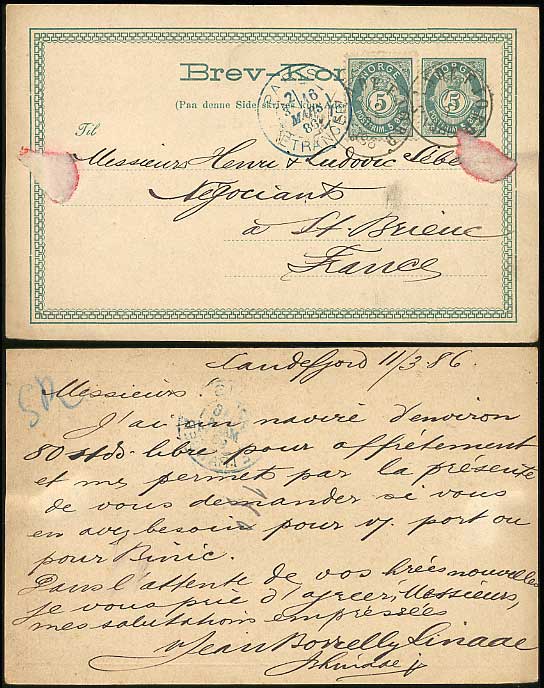 Brev-Kor
(Paa denne Side skrives kun Adressen)
Til
NORGE
5
POSTFRIM. 5 ØRE
NORGE
5
POSTFRIM. 5 ØRE
PARIS
2E / 16
MARS
86
ETRANGER
Messieurs Henri & Ludovic Sébe
Négociants
à St. Brieuc
France
Sandefjord 11/3 86.
Messieurs.
J'ai un navire d'environ
80 stds. libre pour affrètement
et me permet par la présente
de vous demander si vous
en avez besoin pour v/ port ou
pour Binic.
Dans l'attente de vos trées nouvelles
je vous prie d'agréer, Messieurs,
mes salutations empressées